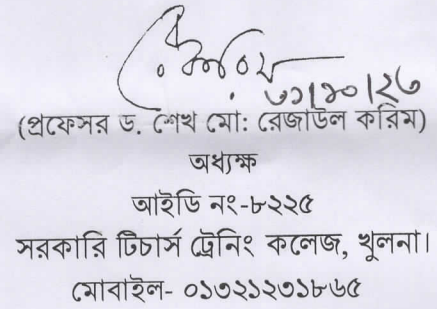 ৩১|১০|২৩
(প্রফেসর ড. শেখ মো: রেজাউল করিম)
অধ্যক্ষ
আইডি নং-৮২২৫
সরকারি টিচার্স ট্রেনিং কলেজ, খুলনা।
মোবাইল- ০১৩২১২৩১৮৬৫